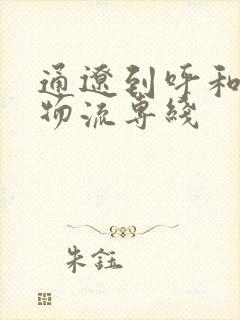 通辽到呼和
物流专线
朱钰